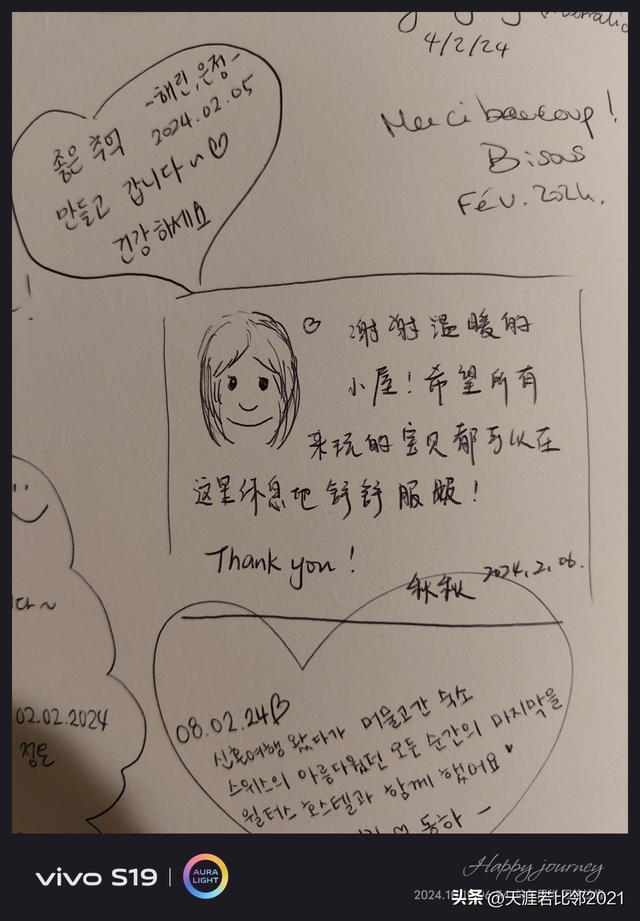 4/2/24
-해린, 은정-
2024.02.05
좋은 추억
만들고 갑니다~♡
건강하세요
Merci beaucoup!
Bisous
Fév. 2024.
谢谢温暖的
小屋！希望所有
来玩的宝贝都可以在
这里休息地舒舒服服！
Thank you!
秋秋 2024.2.06.
다~
02.02.2024
08.02.24♡
신혼여행 왔다가 머물고간 숙소
스위스의 아름다웠던 모든 순간의 마지막을
월터스 호스텔과 함께 했어요♥
♡ 동하 -
vivo S19
AURA
LIGHT
Happy journey
头条 @天涯若比邻2021